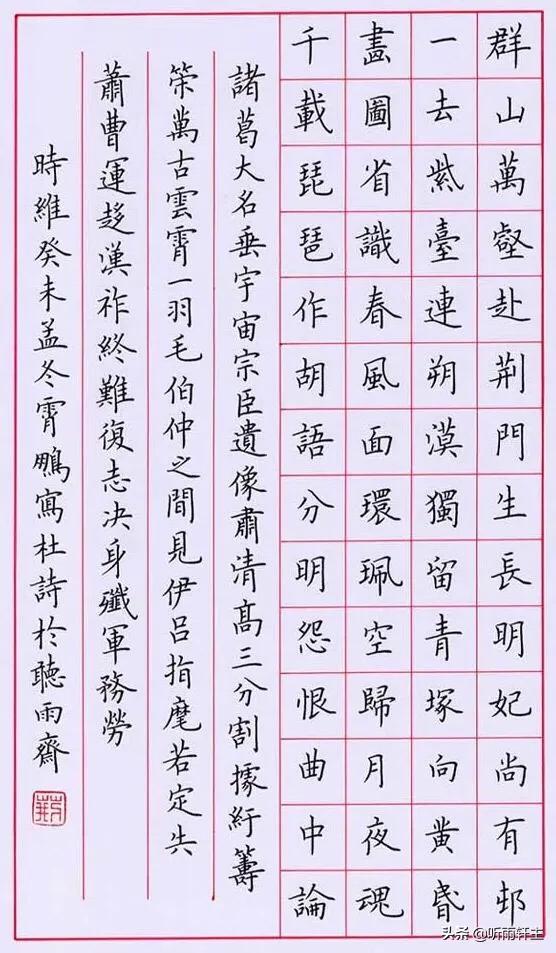 群山萬壑赴荆門生長明妃尚有邨
一去紫臺連朔漠獨留青塚向黄昏
畫圖省識春風面環珮空歸月夜魂
千載琵琶作胡語分明怨恨曲中論
諸葛大名垂宇宙宗臣遺像肅清高三分割據紆籌
策萬古雲霄一羽毛伯仲之間見伊吕指麾若定失
蕭曹運移漢祚終難復志决身殲軍務勞
時維癸未孟冬霄鵬寫杜詩於聽雨齋
头条 @听雨轩主